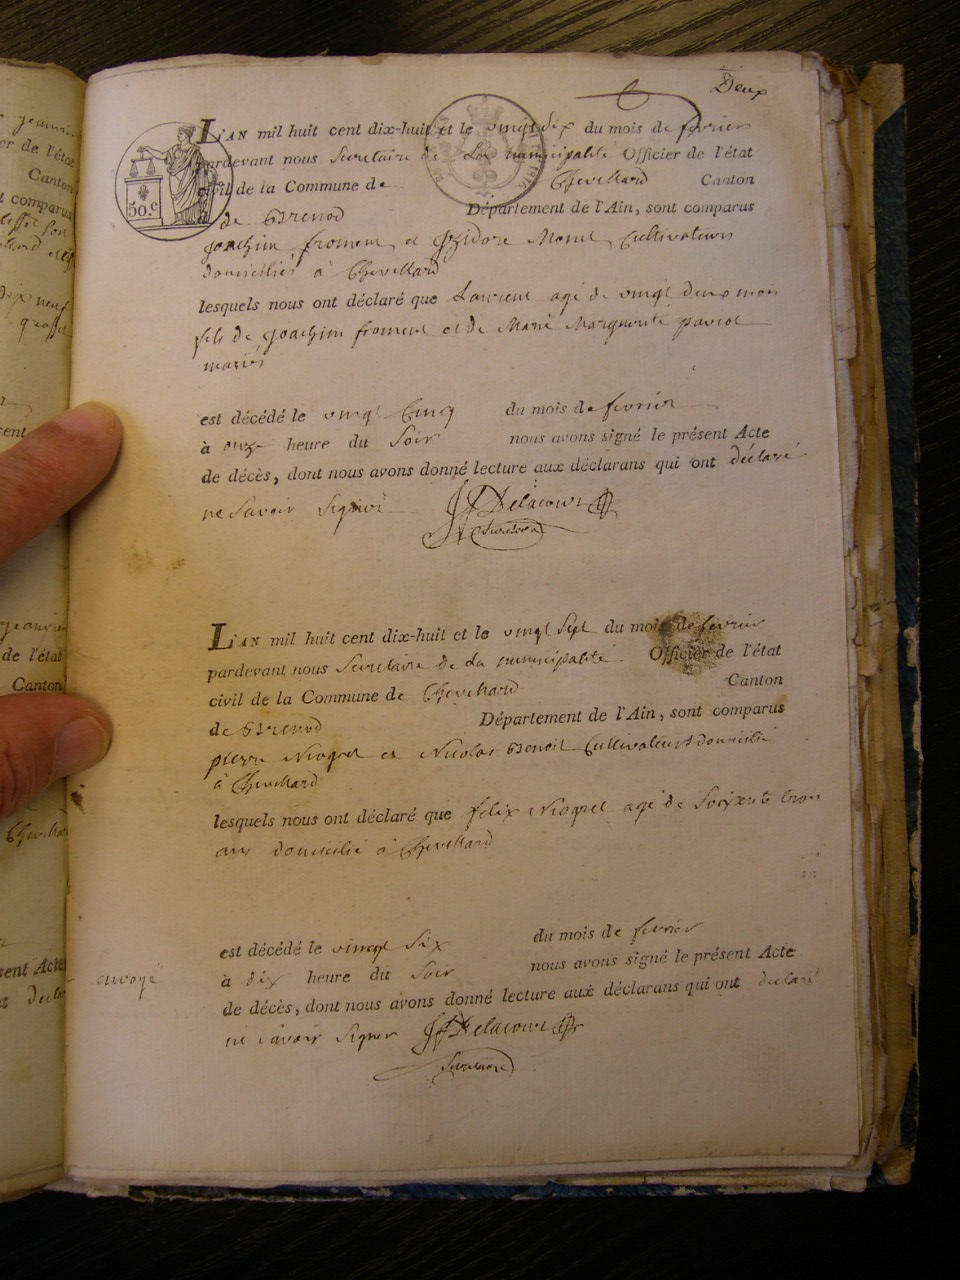 Deux
L'AN mil huit cent dix-huit et le vingt six du mois de fevrier
pardevant nous Secretaire de La municipalité Officier de l'état
civil de la Commune de Chevillard Canton
50.c de Brenod Département de l'Ain, sont comparus
joachim froment et Monet Cultivateurs
domiciliés à Chevillard
lesquels nous ont déclaré que Laurent agé de vingt deux mois
fils de joachim froment et de Marie Marguerite
mariés
est décédé le vingt Cinq du mois de fevrier
à onze heure du Soir nous avons signé le présent Acte
de décès, dont nous avons donné lecture aux déclarans qui ont déclaré
ne Savoir Signer Delacour
Secretaire
L'AN mil huit cent dix-huit et le vingt Sept du mois de fevrier
pardevant nous Secretaire de La municipalité Officier de l'état
civil de la Commune de Chevillard Canton
de Brenod Département de l'Ain, sont comparus
pierre Niogret et Nicolas Benoit Cultivateurs domicilié
à Chevillard
lesquels nous ont déclaré que felix Niogret agé de Soixente trois
ans domicilié à Chevillard
est décédé le vingt Six du mois de fevrier
à dix heure du Soir nous avons signé le présent Acte
envoyé
de décès, dont nous avons donné lecture aux déclarans qui ont declaré
ne Savoir Signer Delacour
Secretaire